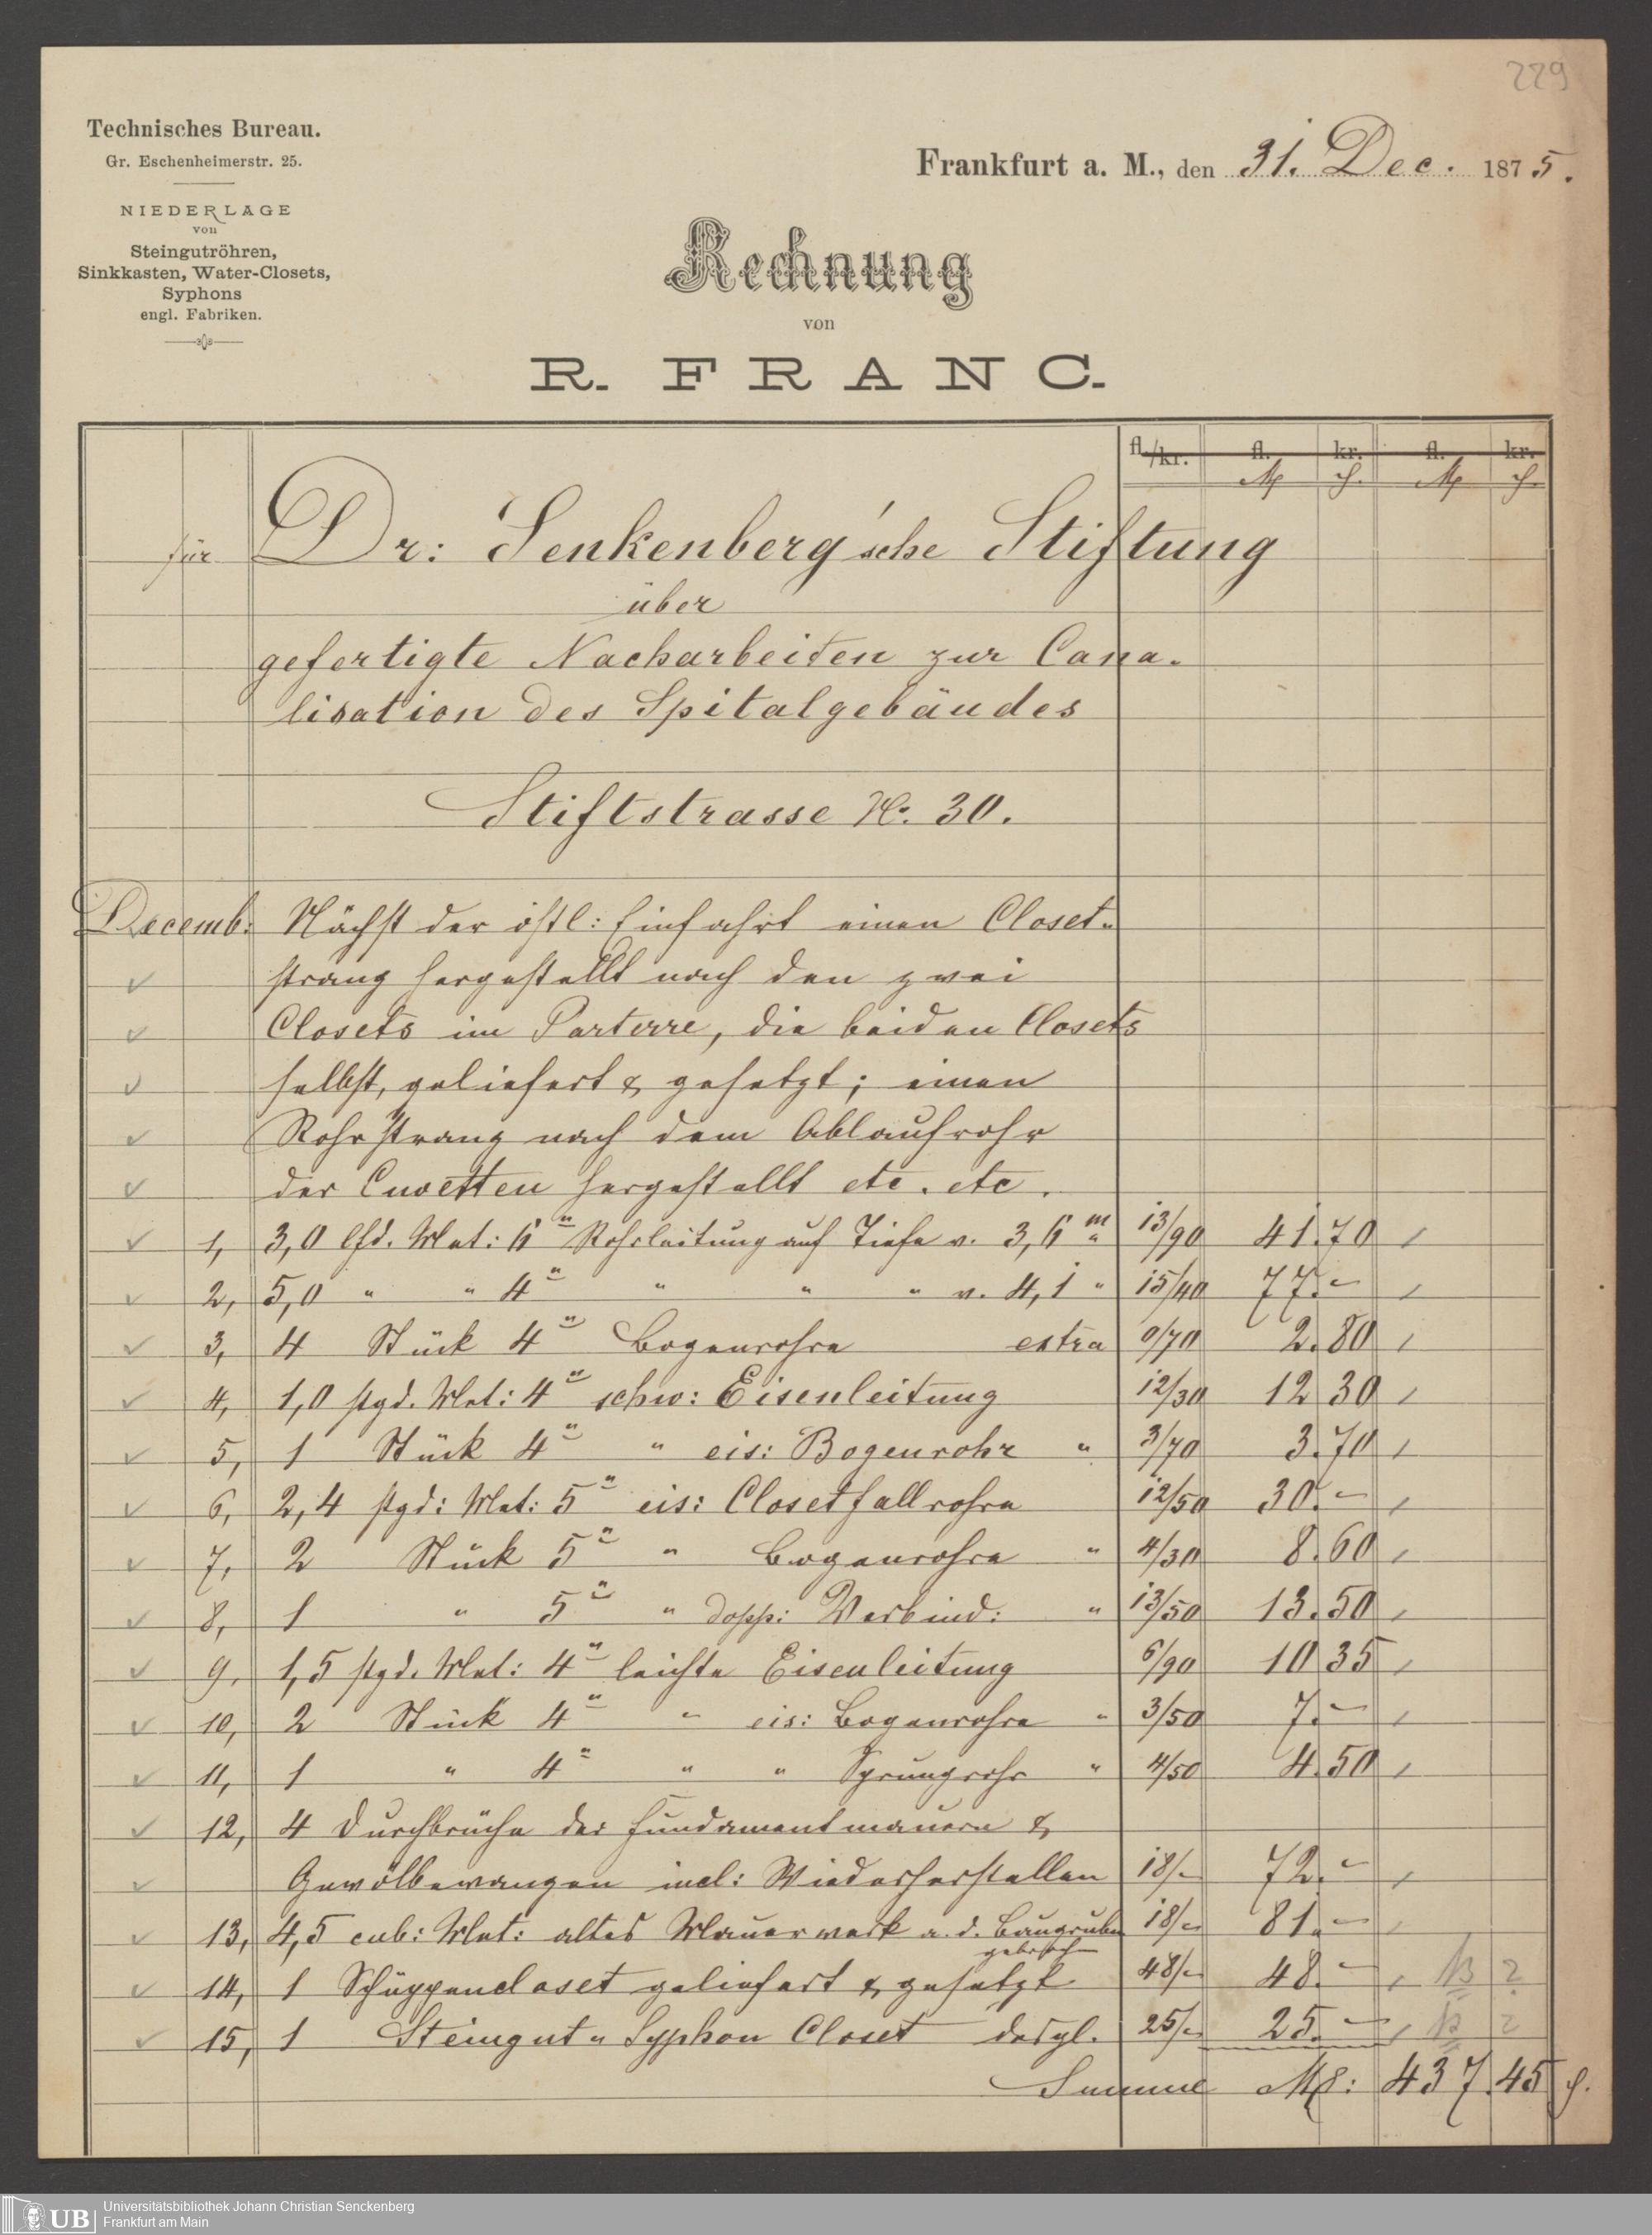 229
Technisches Bureau.
Gr. Eschenheimerstr. 25.
NIEDERLAGE
von
Steingutröhren,
Sinkkasten, Water-Closets,
Syphons
engl. Fabriken.
Frankfurt a. M., den 31. Dec. 1875.
Rechnung
von
R. FRANC.
fl./kr. fl. kr. fl. kr.
M ₰ M ₰
für Dr: Senkenberg'sche Stiftung
über
gefertigte Nacharbeiten zur Cana-
lisation des Spitalgebäudes
Stiftstrasse No. 30.
Decemb: Nächst der östl: Einfahrt einen Closet-
strang hergestellt nach den zwei
Closets im Parterre, die beiden Closets
selbst, geliefert & gesetzt; einen
Rohrstrang nach dem Ablaufrohr
der Cuvetten hergestellt etc. etc.
1, 3,0 lfd. Met: 6" Rohrleitung auf Tiefe v. 3,6 m 13/90 41.70
2, 5,0 " " 4" " " " v. 4,1 " 15/40 77.-
3, 4 Stück 4" Bogenrohre extra 0/70 2.80
4, 1,0 stgd. Met: 4" schw: Eisenleitung 12/30 12 30
5, 1 Stück 4" " eis: Bogenrohr " 3/70 3.70
6, 2,4 stgd: Met: 5" eis: Closetfallrohre 12/50 30.-
7, 2 Stück 5" " Bogenrohre " 4/30 8.60
8, 1 " 5" " dopp: Verbind: " 13/50 13.50
9, 1,5 stgd. Met: 4" leichte Eisenleitung 6/90 10 35
10, 2 Stück 4" " eis: Bogenrohre " 3/50 7.-
11, 1 " 4" " " Sprungrohr " 4/50 4.50
12, 4 Durchbrüche der Fundamentmauern &
Gewölbewangen incl: Wiederherstellen 18/- 72.-
13, 4,5 cub: Met: altes Mauerwerk a. d. Baugrube 18/- 81.-
gebrochen
14, 1 Schüppencloset geliefert & gesetzt 48/- 48.- ?
15, 1 Steingut-Syphon Closet desgl. 25/- 25.- ?
Summe M: 437.45 ₰.
UB Universitätsbibliothek Johann Christian Senckenberg
Frankfurt am Main